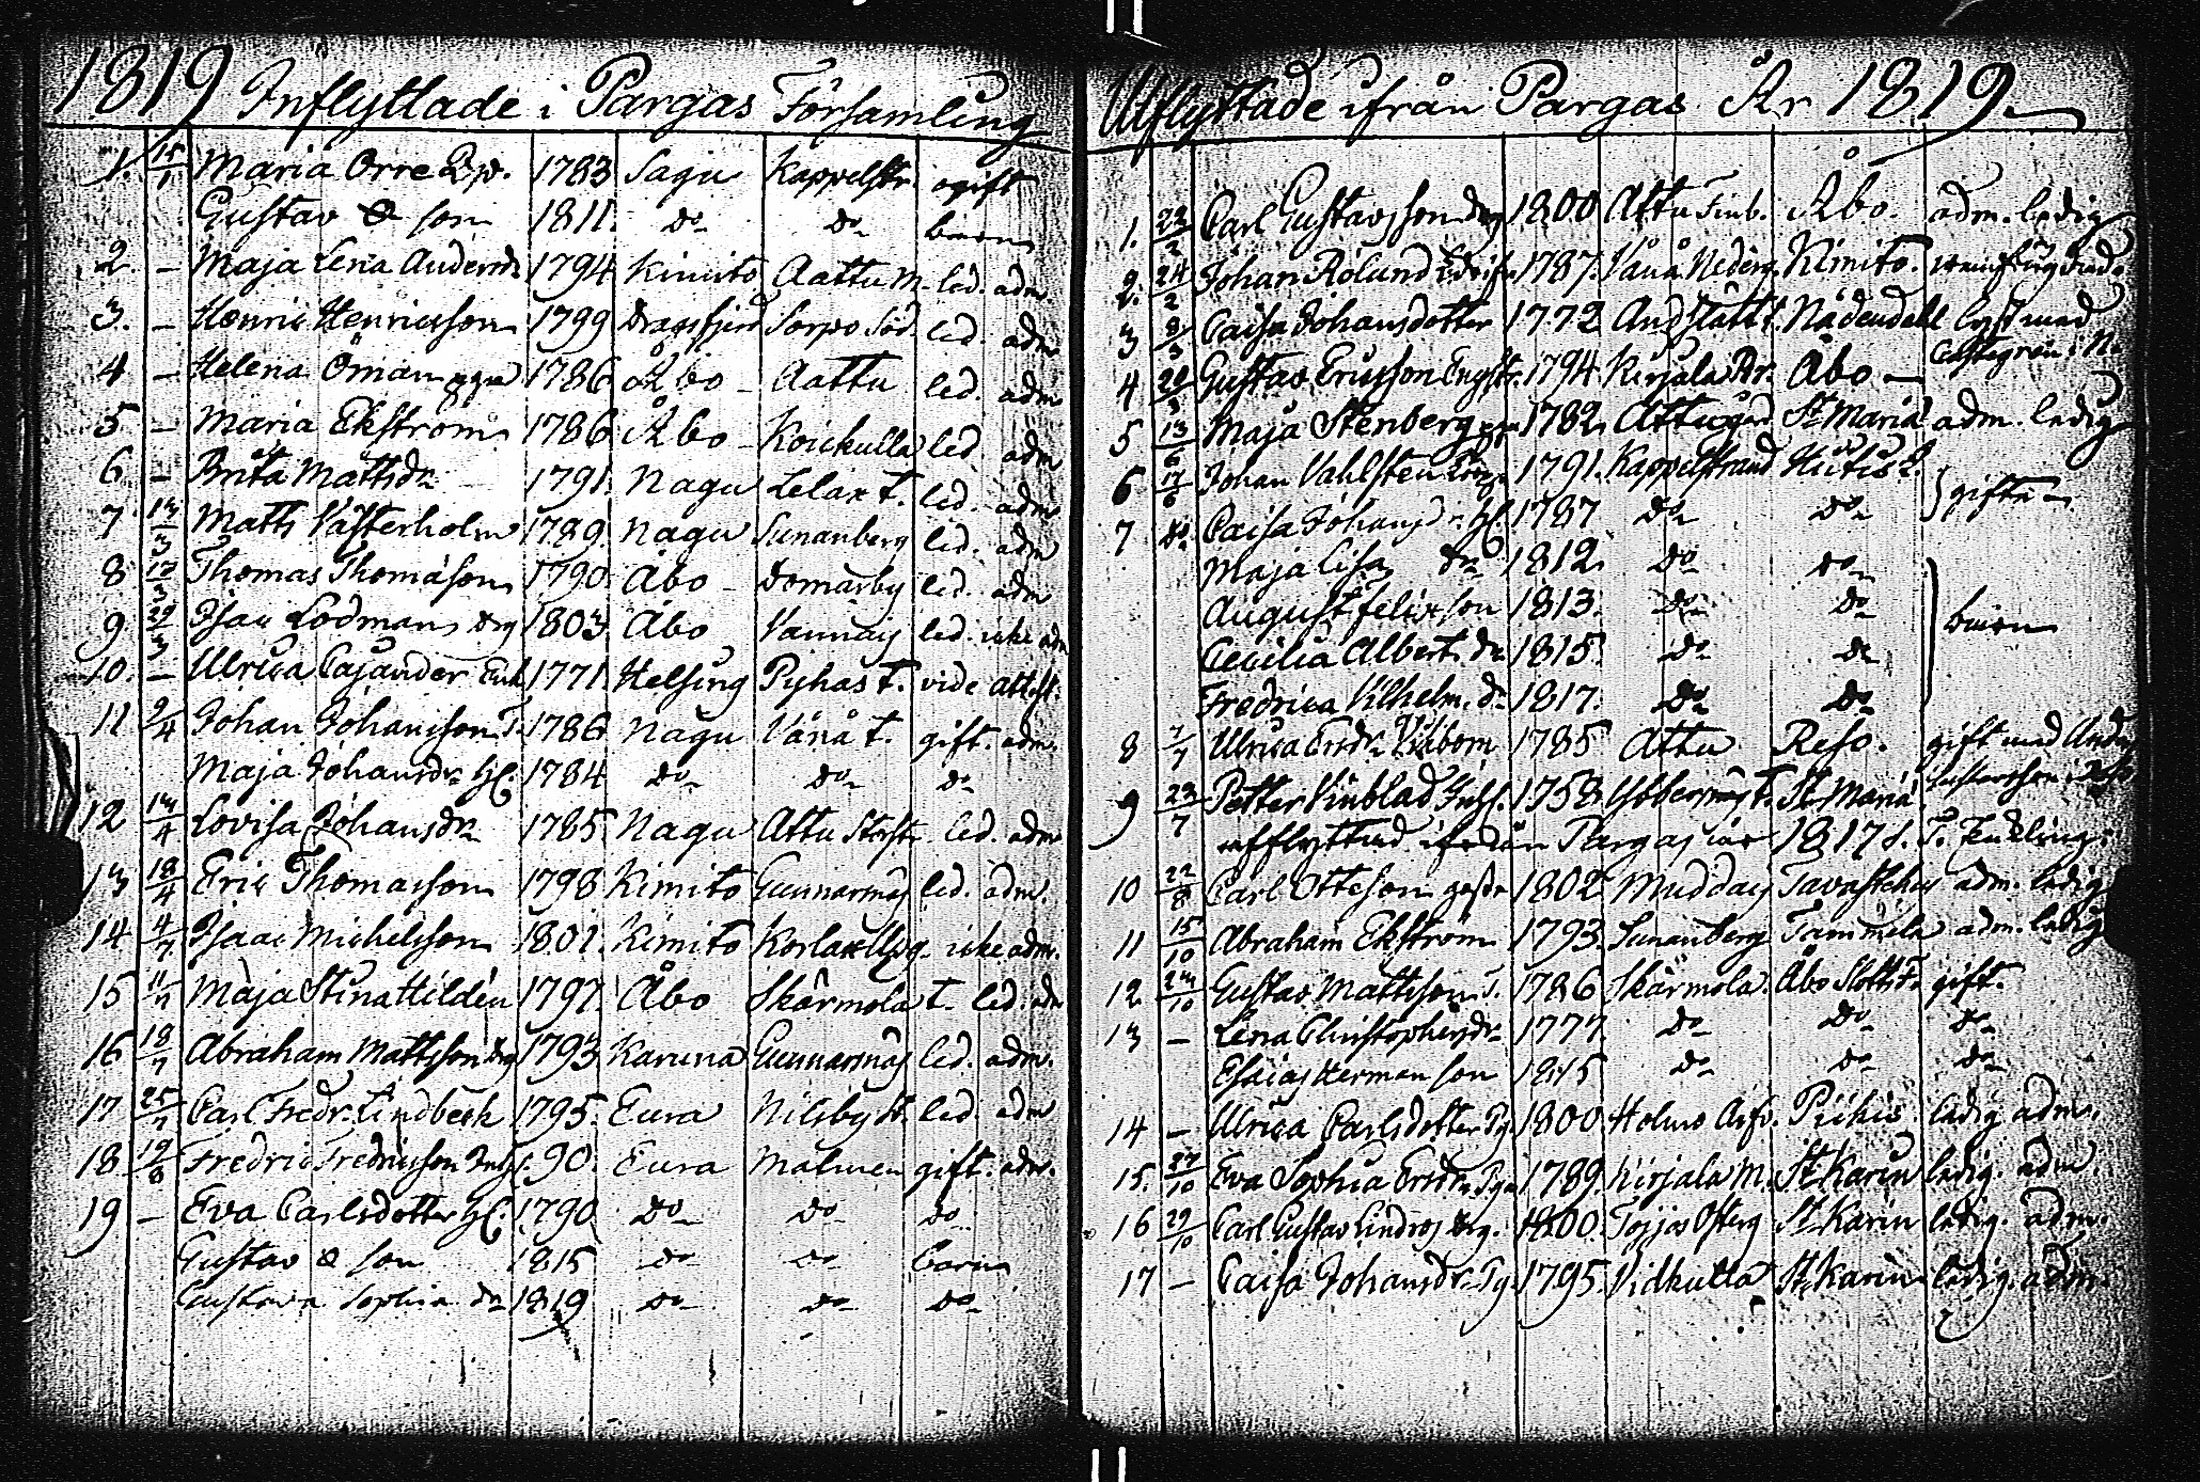 1819 Inflyttade i Pargas Församling
1. 15/1 Maria Orre 1783 Sagu Kappelstr. ogift
Gustav son 1811. do do barn
2. – Maja Lena Andersdr 1794 Kimito Aattu M. led. adm.
3. – Henric Henricsson 1799 Dragsfjerd Sorpo Söd. led. adm
4 – Helena Öman pga 1786 Åbo – Aattu led. adm
5 – Maria Ekström 1786 Åbo – Koickulla led. adm
6 – Brita Mattsdr 1791. Nagu Lelax t. led. adm
7 14/3 Matts Västerholm 1789. Nagu Sunanberg led. adm
8 17/3 Thomas Thomasson 1790. Åbo – Domarby led. adm
9 29/3 Isac Lodman drg 1803. Åbo Vannais led. icke adm
10. – Ulrica Cajander Enk. 1771. Helsing Pyhas t. vide attest.
11 9/4 Johan Johansson T. 1786 Nagu Vånå t. gift. adm.
Maja Johansdr H. 1784 do do do
12 14/4 Lovisa Johansdr 1785 Nagu Attu led. adm
13 18/4 Eric Thomasson 1798 Kimito Gunnarsnäs led. adm.
14 4/7 Isaac Michelsson 1801. Kimito Korlax icke adm.
15 11/7 Maja Stina Hildén 1797. Åbo Skärmola t. led. adm
16 18/7 Abraham Mattsson drg 1793 Karuna Gunnarsnäs led. adm.
17 25/7 Carl Fredr. Lindbeck 1795. Eura Nilsby led. adm
18 19/8 Fredric Fredricsson Inhs. 90. Eura Malmen gift. adm.
19 – Eva Carlsdotter H. 1790 do do do
Gustav son 1815 do do barn
Gustava Sophia dr 1819 do do do
Utflyttade ifrån Pargas År 1819.
1. 23/2 Carl Gustavsson drg 1800 Attu Åbo. adm. ledig
2. 24/2 Johan Rölund 1787. Vånå Nederg. Kimito.
3 8/3 Caisa Johansdotter 1772 Nådendal lyst med
4 20/3 Gustav Ericsson 1794. Kirjala Åbo –
5 13/6 Maja Stenberg 1782 Attu St Maria adm. ledig
6 17/6 Johan Vahlsten 1791. Kappelstrand Hitis
7 do Caisa Johansdr H. 1787 do do gifta
Maja Lisa dr 1812. do do
August Felix son 1813. do do barn
Cecilia Albert. dr 1815. do do
Fredrica Vilhelm. dr 1817. do do
8 7/7 Ulrica Ersdr 1785 Attu Reso. gift med
9 23/7 Petter Vinblad Inhs. 1758. St Maria
afflyttad ifrån Pargas 1817
10 22/8 Carl Otteson 1802 Muddais Tavastehus adm. ledig
11 15/10 Abraham Ekström 1793. Sunanberg Tammela adm. ledig
12 24/10 Gustav Mattsson T. 1786 Skärmola. Åbo Slotts gift.
13 – Lena Christophersdr 1777. do do do
Esaias Herman son 1815 do do do
14 – Ulrica Carlsdotter Pg. 1800. Holmo Pikis ledig adm.
15. 27/10 Eva Sophia Ersdr Pga 1789. Kirjala M. St Karin ledig. adm.
16 29/10 Carl Gustav Lindros drg. 1800. Tojjos Österg St Karin ledig. adm.
17 – Caisa Johansdr Pg. 1795. Vidkulla St Karin ledig. adm.